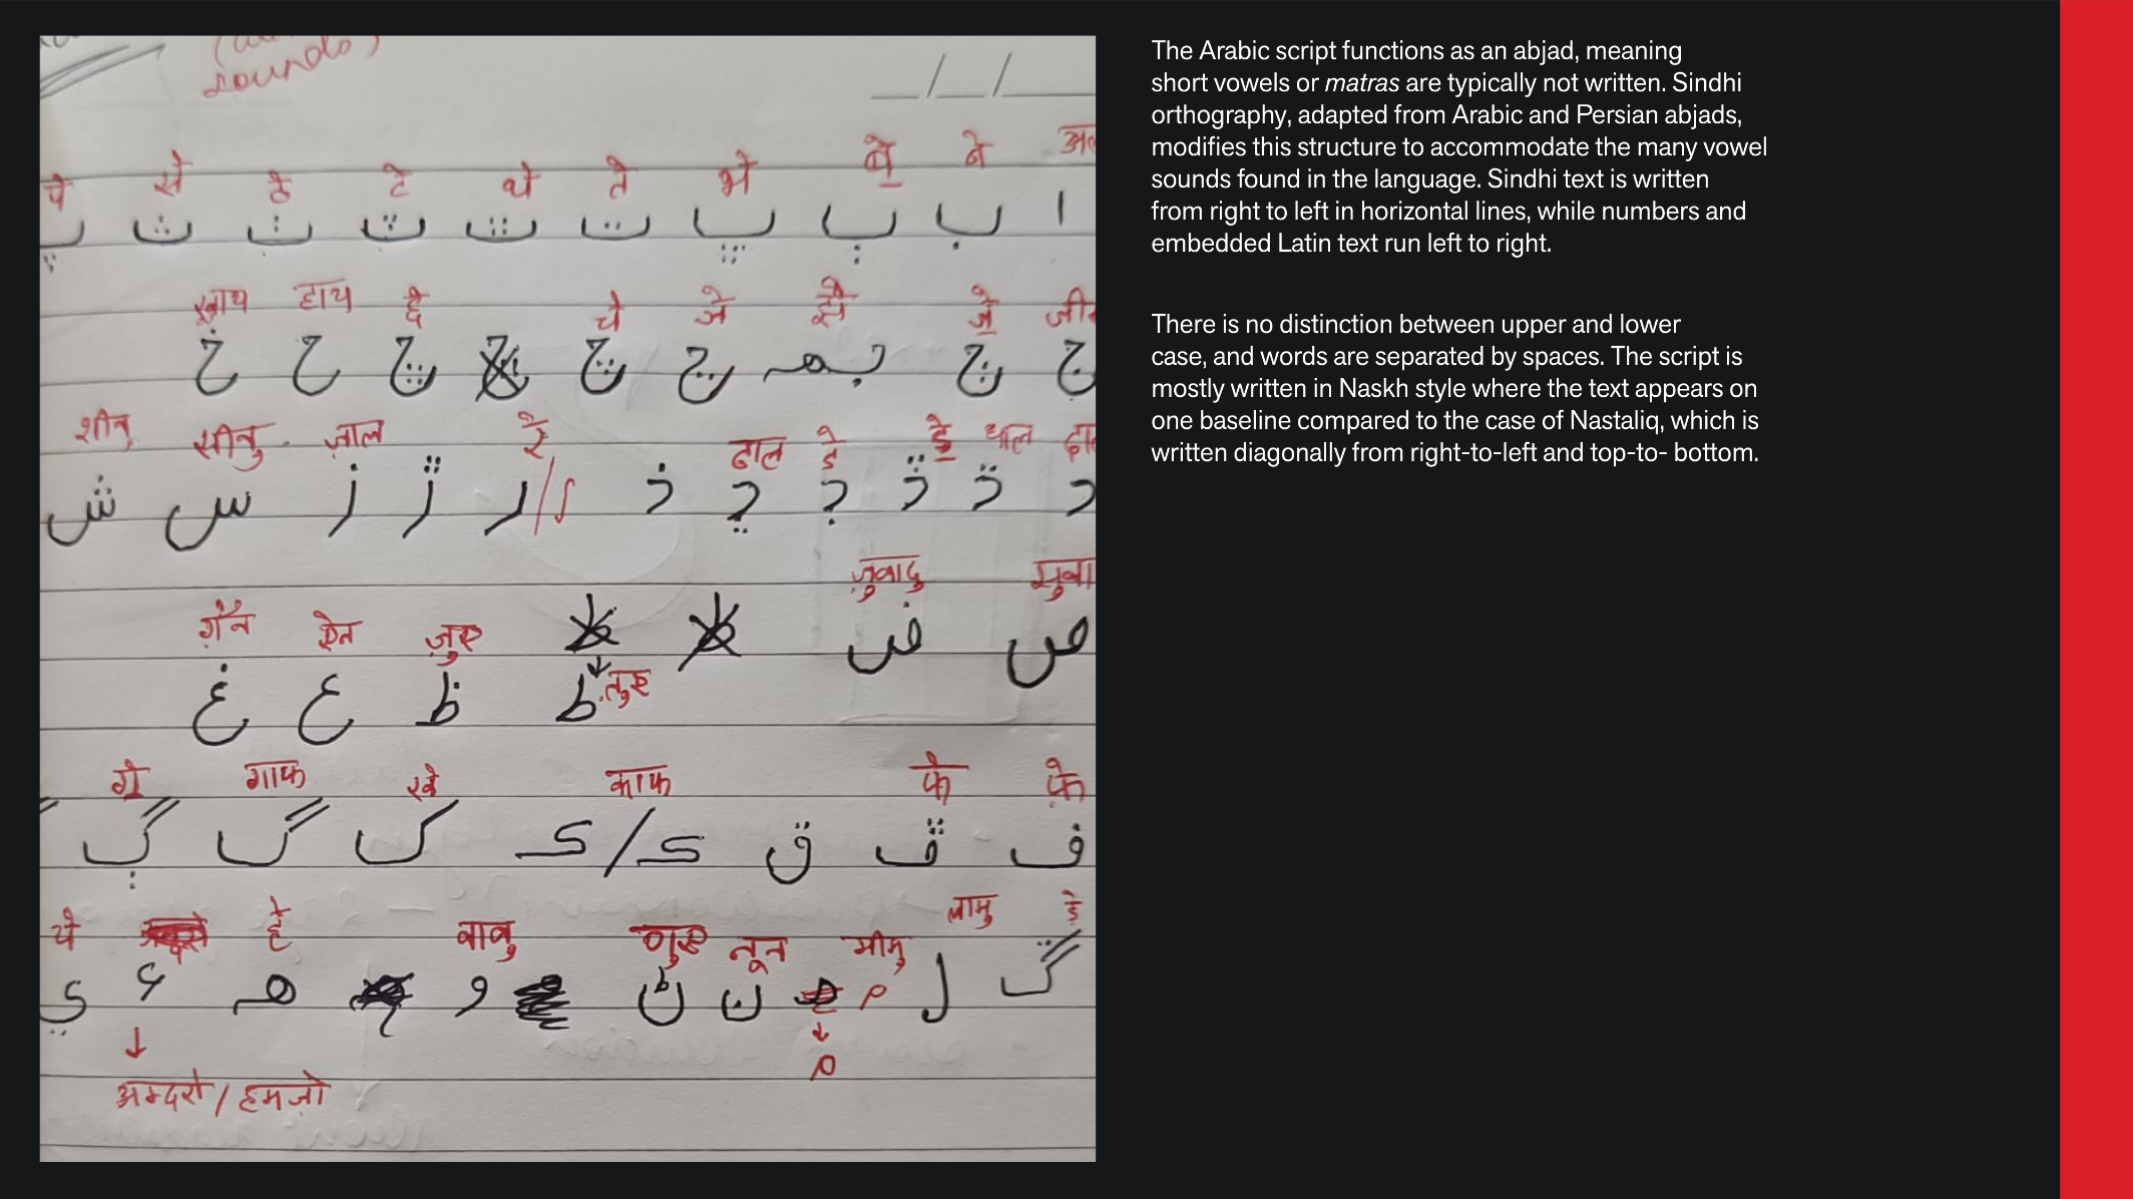 sounds)
__/__/__
बे ॿे भे ते थे टे ठे से
ا ب ٻ ڀ ت ٿ ٽ ٺ ث پ
ॼे झे ञे चे छे हाय ख़ाय
ج ڄ جهہ ڃ چ ڇ ح خ
ॾे डे ढाल रे ज़ाल सीनु शीनु
د ڌ ڏ ڊ ڍ ذ ر ڙ ز س ش
ज़ुवादु
ص ض
तुइ ज़ुइ ऐन ग़ैन
ط ظ ع غ
फ़े फे काफ खे गाफ ॻे
ف ڦ ق ڪ / ڪ ک گ ڳ
ङे लामु मीमु नून णुइ वावु हे ये
ڱ ل م ن ڻ و ھ ء ي
م
अम्दरो / हमज़ो
The Arabic script functions as an abjad, meaning
short vowels or matras are typically not written. Sindhi
orthography, adapted from Arabic and Persian abjads,
modifies this structure to accommodate the many vowel
sounds found in the language. Sindhi text is written
from right to left in horizontal lines, while numbers and
embedded Latin text run left to right.
There is no distinction between upper and lower
case, and words are separated by spaces. The script is
mostly written in Naskh style where the text appears on
one baseline compared to the case of Nastaliq, which is
written diagonally from right-to-left and top-to- bottom.